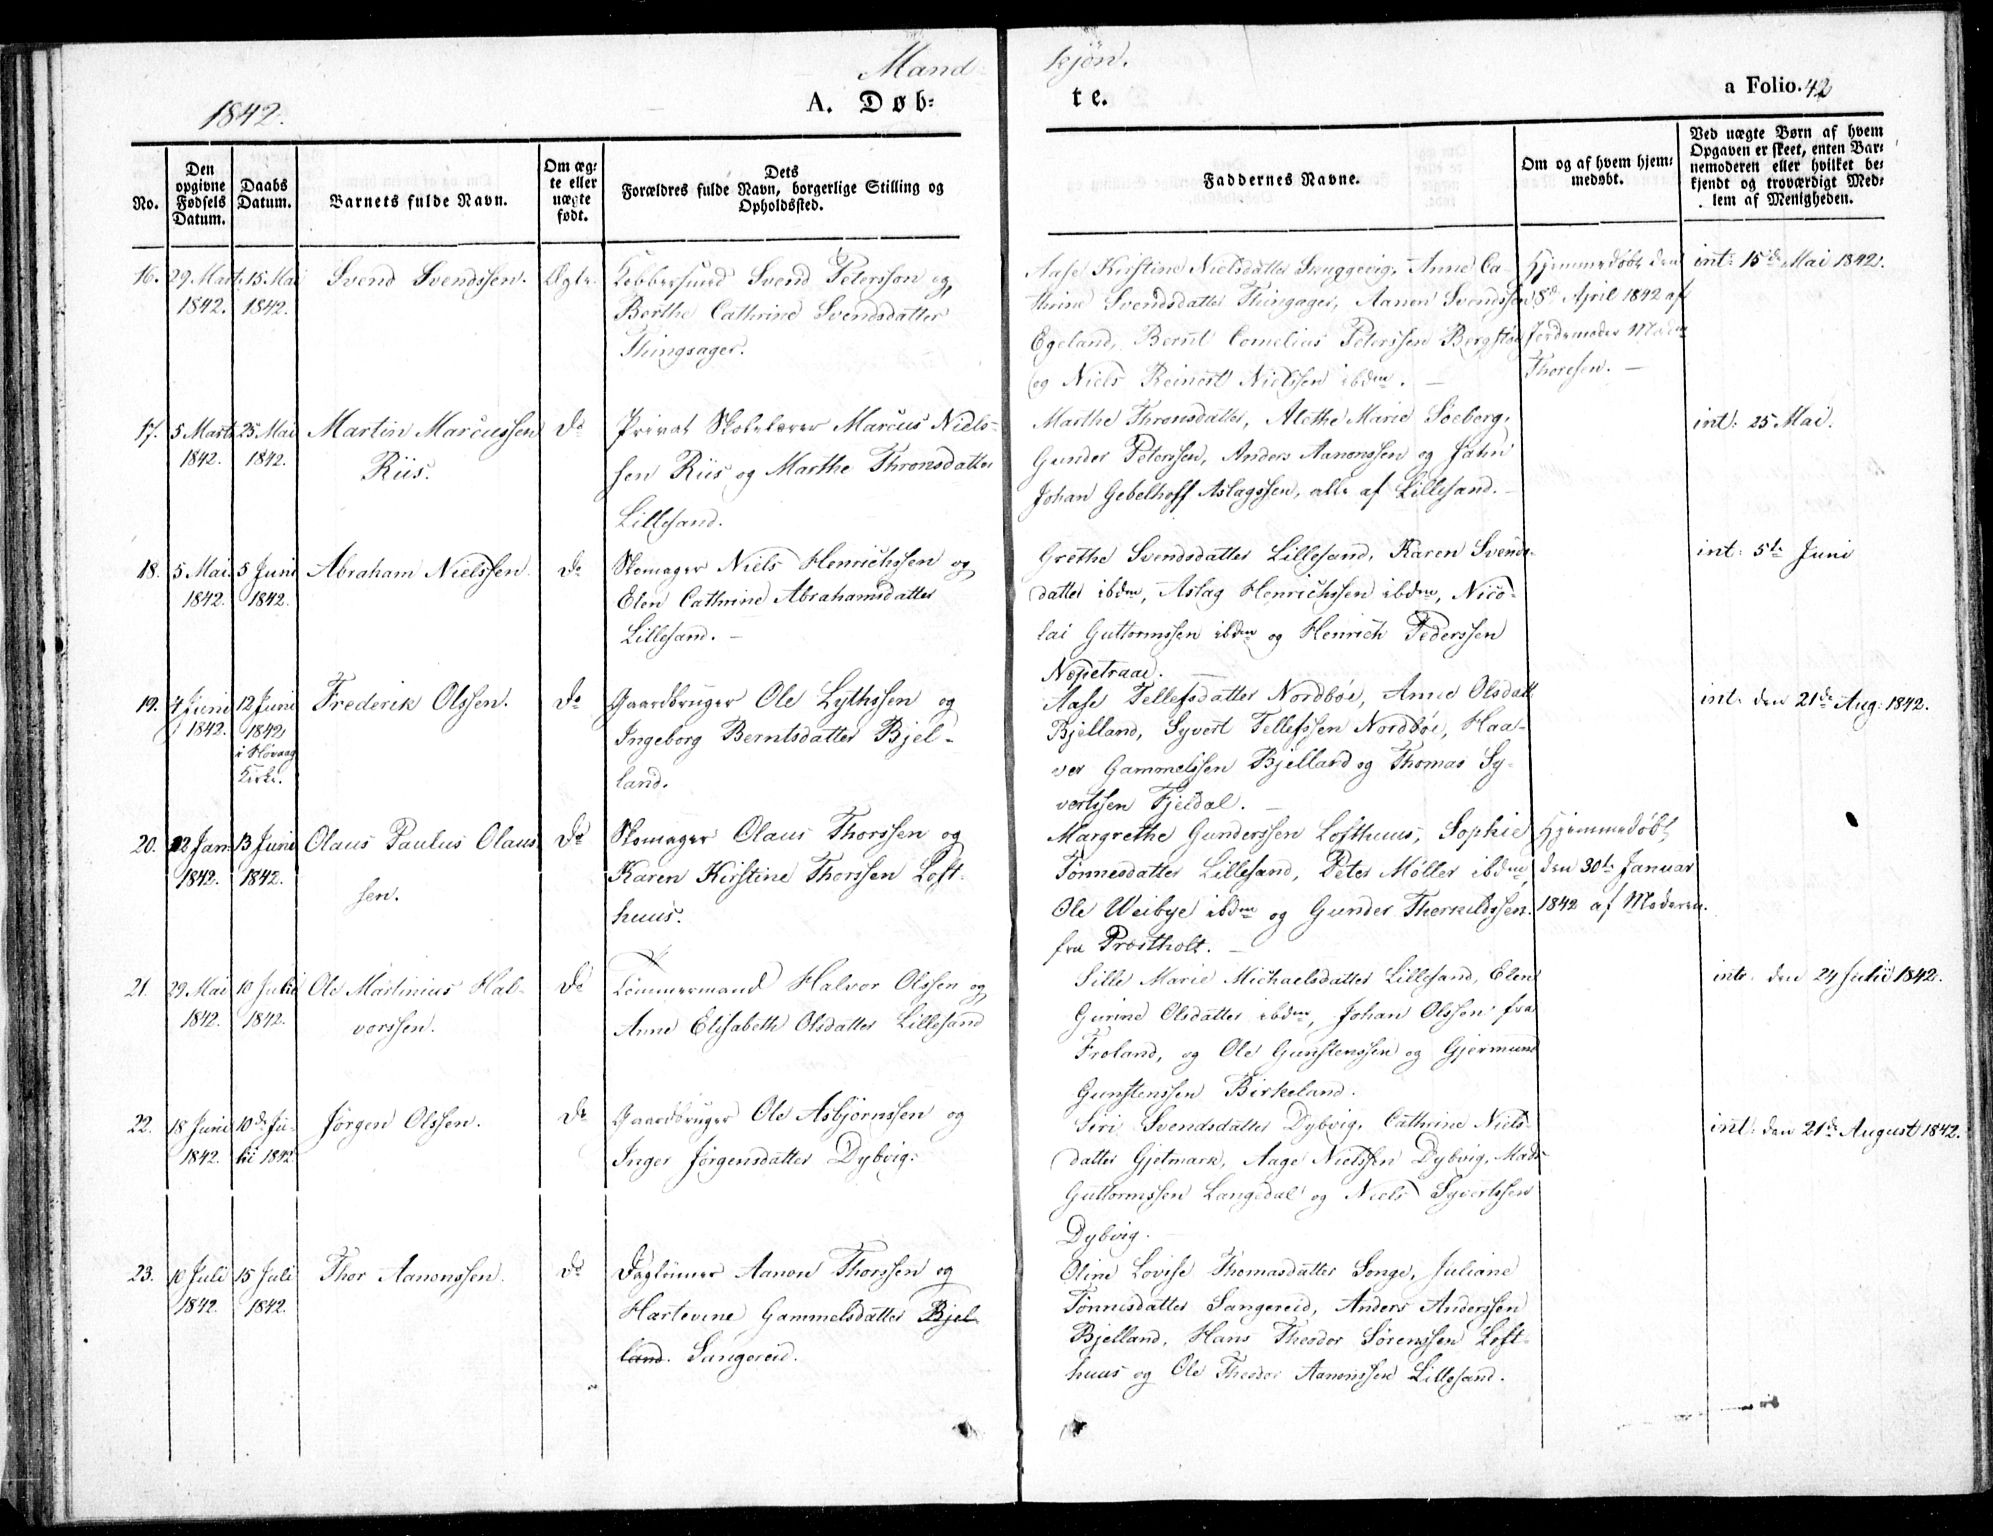 Mand-
kjön.
1842.
A. Døb-
te.
a Folio. 42
No.
Den opgivne Fødsels Datum.
Daabs Datum.
Barnets fulde Navn.
Om æg-
te eller
uægte
født.
Dets
Forældres fulde Navn, borgerlige Stilling og
Opholdssted.
Faddernes Navne.
Om og af hvem hjem-
medøbt.
Ved uægte Børn af hvem
Opgaven er skeet, enten Bar-
nemoderen eller hvilket be-
kjendt og troværdigt Med-
lem af Menigheden.
16.
29 Marts
1842.
15 Mai
1842.
Svend Svendssen.
Ægte.
Kobbersmed Svend Peterssøn og
Berthe Cathrine Svendsdatter
Thingsager.
Aase Kirstine Nielsdatter Anne Ca-
thrine Svendsdatter Thingager, Aanon Svendssen
Egeland, Bernt Cornelius Peterssen Bergstøe
og Niels Reinert Nielssen ibdm. –
Hjemmedøbt den
8de April 1842 af
Jordemoder Mdm
Thoresen. –
int: 15de Mai 1842.
17.
5 Marts
1842.
25 Mai
1842.
Martin Marcussen
Riis.
Do
Privat Skolelærer Marcus Niels-
sen Riis og Marthe Thronsdatter
Lillesand.
Marthe Thronsdatter, Alethe Marie Soeberg,
Gunder Peterssen, Anders Aanonssen og Jahn
Johan Gebelhoff Aslagssen, alle af Lillesand. –
int: 25 Mai.
18.
5 Mai
1842.
5 Juni
1842.
Abraham Nielssen.
Do
Skomager Niels Henrichssen og
Elen Cathrine Abrahamsdatter
Lillesand. –
Grethe Svendsdatter Lillesand, Karen Svends-
datter ibdm, Aslag Henrichssen ibdm, Nico-
lai Guttormssen ibdm og Henrich Pederssen
Nepetraae.
int: 5te Juni
19.
4 Juni
1842.
12 Juni
1842
i Høvaag
Kirke.
Frederik Olssen.
Do
Gaardbruger Ole Lythssen og
Ingeborg Berntsdatter Bjel-
land.
Aase Tellefsdatter Nordbøe, Anne Olsdatt
Bjelland, Syvert Tellefssen Nordbøe, Haa-
ver Gammelssen Bjelland og Thomas Sy-
vertssen Fjeldal. –
int: den 21de Aug: 1842.
20.
22 Jan.
1842.
13 Juni
1842.
Olaus Paulus Olaus-
sen.
Do
Skomager Olaus Thorssen og
Karen Kirstine Thorssen Loft-
huus.
Margrethe Gunderssen Lofthuus, Sophie
Tønnesdatter Lillesand, Peter Møller ibdm,
Ole Weibye ibdm og Gunder Therkildssen
fra Prostholt. –
Hjemmedøbt
den 30te Januar
1842 af Moderen.
21.
29 Mai
1842.
10 Julii
1842.
Ole Martinius Hal-
vorssen.
Do
Tømmermand Halvor Olssen og
Anne Elisabeth Olsdatter Lillesand
Sille Marie Michaelsdatter Lillesand, Elen
Gurine Olsdatter ibdm, Johan Olssen fra
Froland, og Ole Gunstenssen og Gjermund
Gunstenssen Birkeland.
int: den 24 Julii 1842.
22.
18 Juni
1842.
10de Ju-
lii 1842
Jørgen Olssen.
Do
Gaardbruger Ole Asbjørnssen og
Inger Jørgensdatter Dybvig.
Siri Svendsdatter Dybvig, Cathrine Niels-
datter Gjetmark, Aage Nielssen Dybvig, Mads
Guttormssen Langedal og Niels Syvertssen
Dybvig.
int: den 21de August 1842.
23.
10 Juli
1842.
15 Juli
1842.
Thor Aanonssen.
Do
Daglønner Aanon Thorssen og
Hartevine Gammelsdatter Bjel-
land. Sangereid.
Oline Lovise Thomasdatter Songe, Juliane
Tønnisdatter Sangereid, Anders Anderssen
Bjelland, Hans Theodor Sørenssen Loft-
huus og Ole Theodor Aanonssen Lillesand.